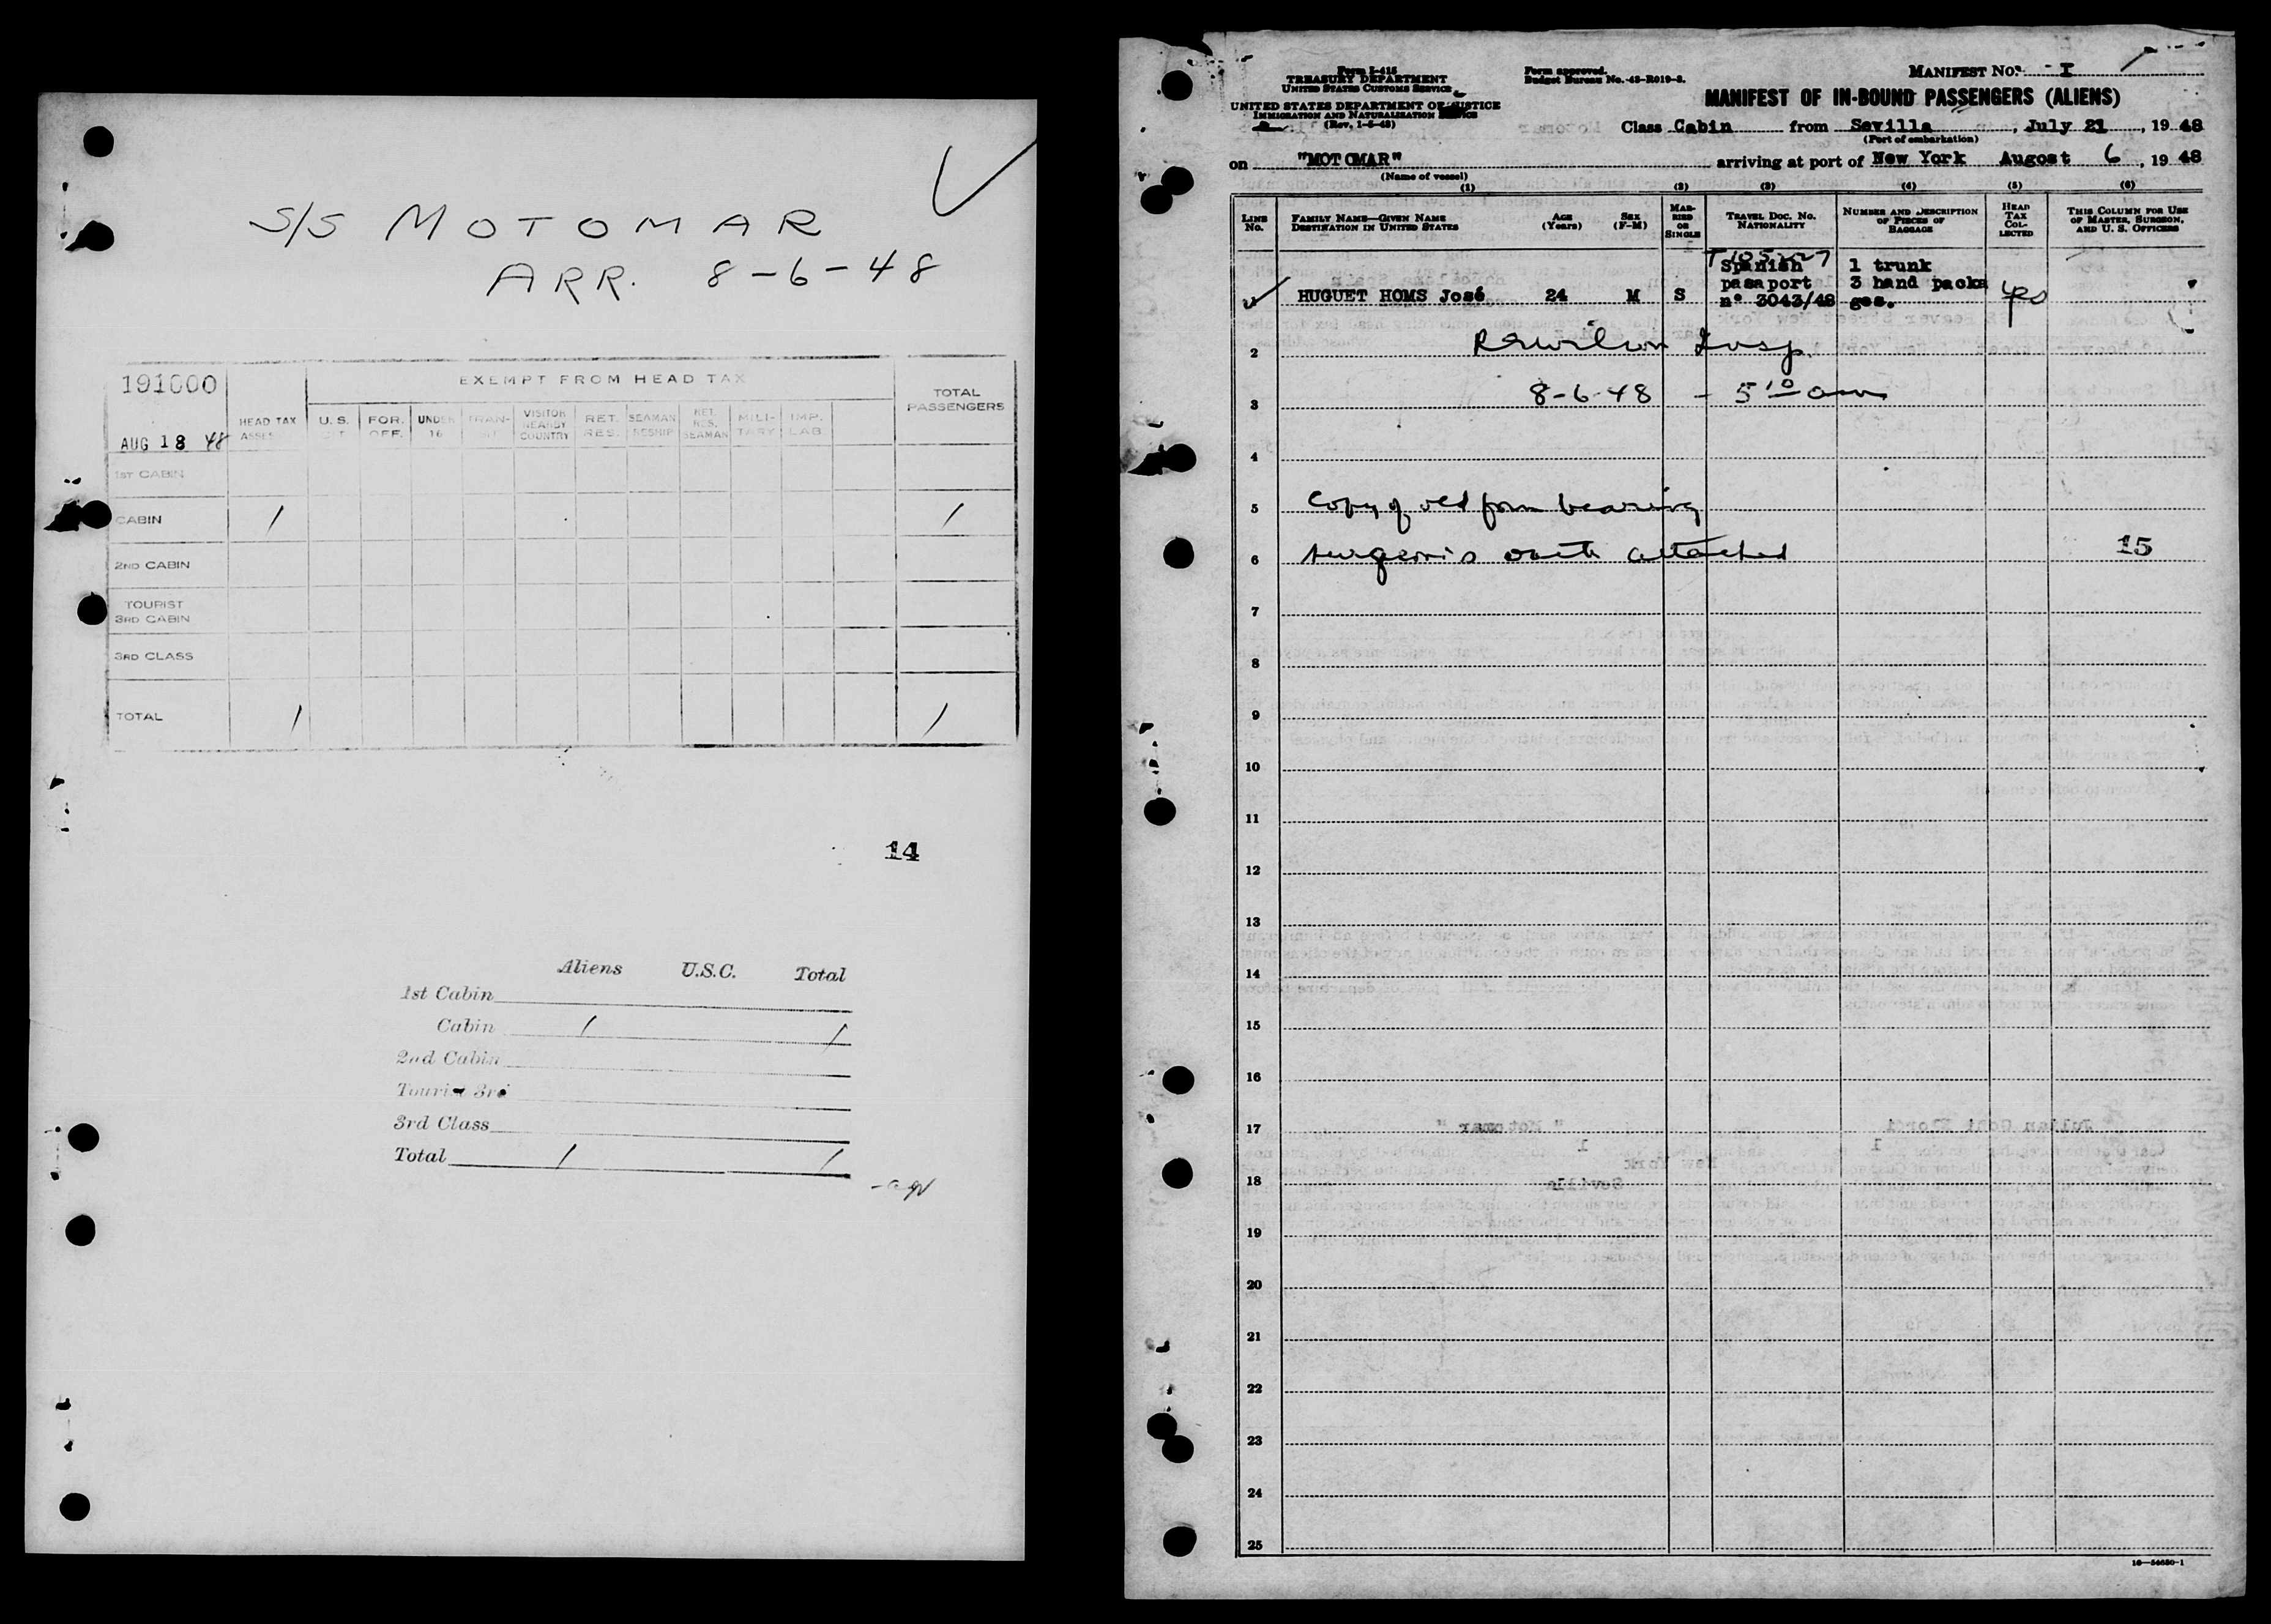 S/S MOTOMAR
ARR. 8-6-48
191000
AUG 18 48
HEAD TAX
ASSES
EXEMPT FROM HEAD TAX
U.S.
FOR.
OFF.
UNDER
16
TRAN-
VISITOR
NEARBY
COUNTRY
RET.
RES.
SEAMAN
RESHIP
RET.
RES.
SEAMAN
MILI-
TARY
IMP.
LAB.
TOTAL
PASSENGERS
1ST CABIN
CABIN 1 1
2ND CABIN
TOURIST
3RD CABIN
3RD CLASS
TOTAL 1 1
14
Aliens U.S.C. Total
1st Cabin
Cabin 1 1
2nd Cabin
Tourist 3rd
3rd Class
Total 1 1
Form I-415
TREASURY DEPARTMENT
UNITED STATES CUSTOMS SERVICE
UNITED STATES DEPARTMENT OF JUSTICE
IMMIGRATION AND NATURALIZATION SERVICE
(Rev. 1-6-48)
Form approved.
Budget Bureau No. 43-R019-3.
MANIFEST No. I
MANIFEST OF IN-BOUND PASSENGERS (ALIENS)
Class Cabin from Sevilla, July 21, 1948
(Port of embarkation)
on "MOTOMAR" arriving at port of New York August 6, 1948
(Name of vessel)
(1) (2) (3) (4) (5) (6)
LINE
No.
FAMILY NAME—GIVEN NAME
DESTINATION IN UNITED STATES
AGE
(Years)
SEX
(F-M)
MAR-
RIED
OR
SINGLE
TRAVEL DOC. NO.
NATIONALITY
NUMBER AND DESCRIPTION
OF PIECES OF
BAGGAGE
HEAD
TAX
COL-
LECTED
THIS COLUMN FOR USE
OF MASTER, SURGEON,
AND U. S. OFFICERS
Spanish 1 trunk
pasaport 3 hand packa
HUGUET HOMS José 24 M S nº 3043/48 ges. yes
2 Insp.
3 8-6-48 - 5 10 am
4
5 Copy of old form bearing
6 surgeon's oath attached 15
7
8
9
10
11
12
13
14
15
16
17
18
19
20
21
22
23
24
25